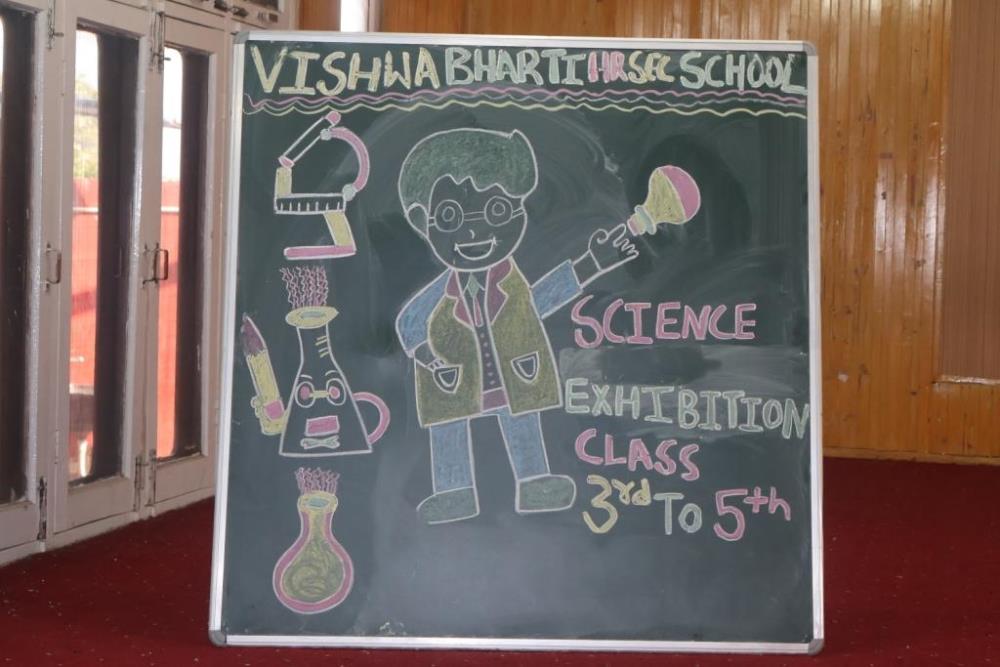 VISHWA BHARTI HR SEC SCHOOL
SCIENCE
EXHIBITION
CLASS
3rd To 5th